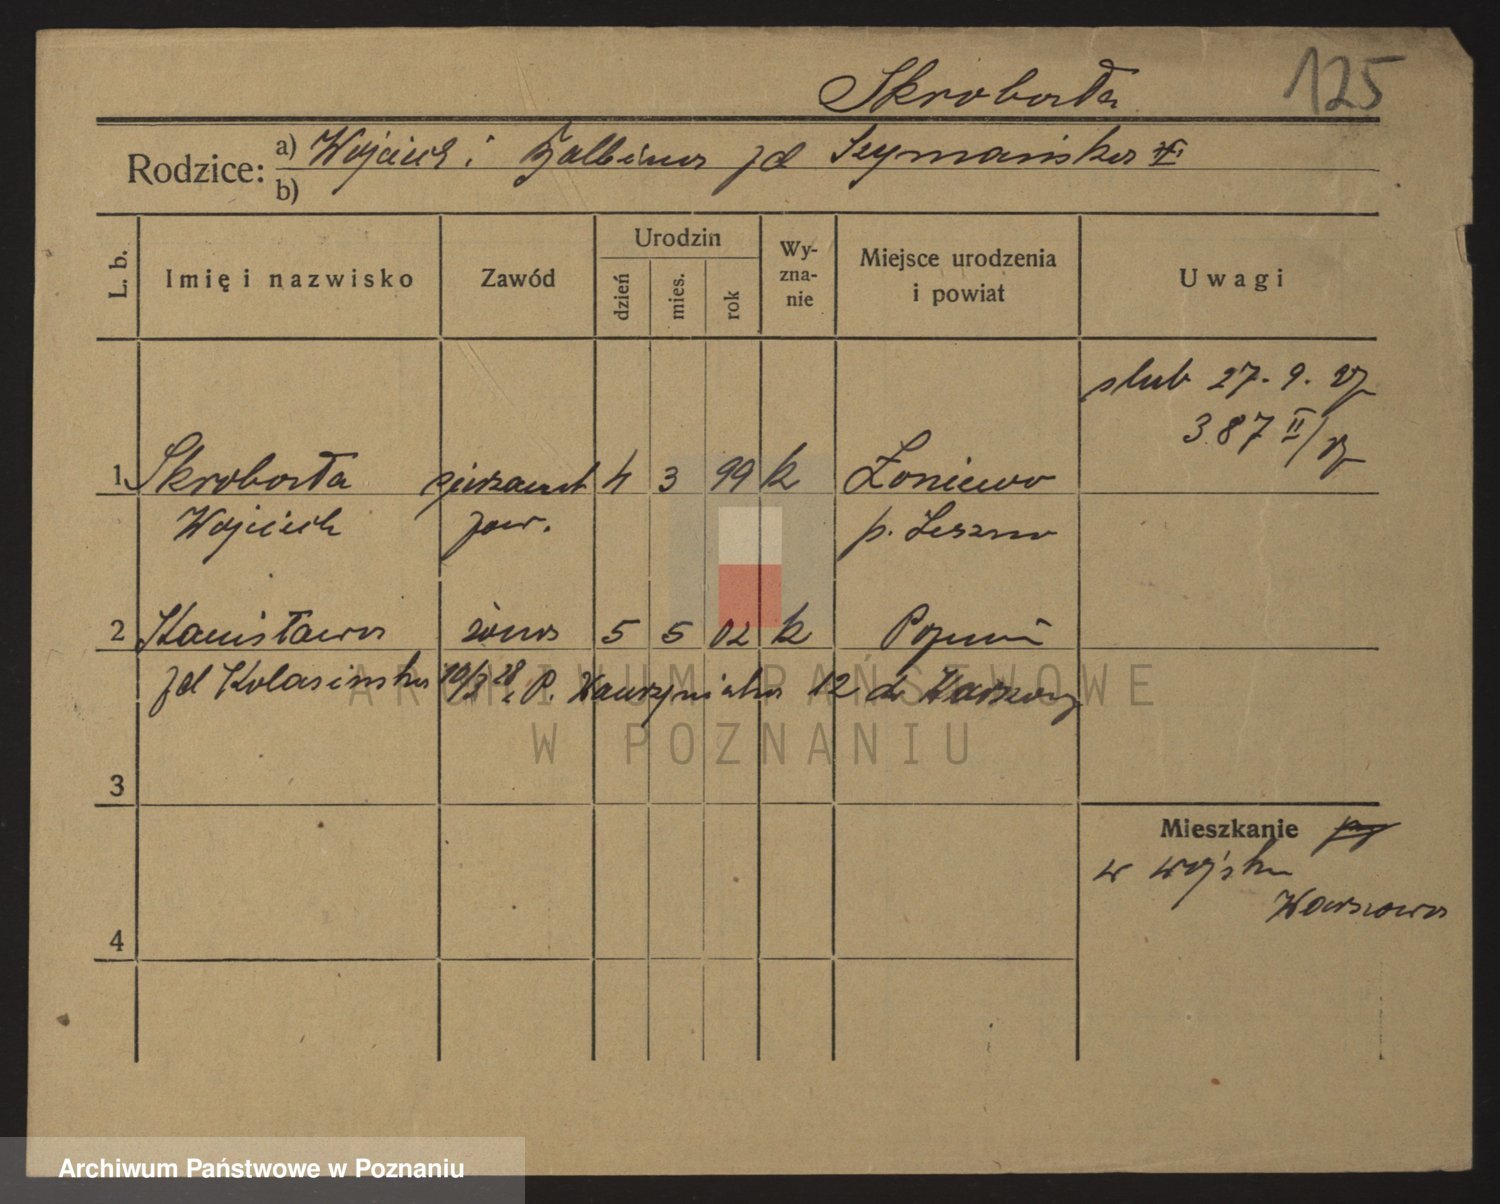 Skrobała 125
Rodzice: a) Wojciech i Balbina zd Szymańska
b)
L. b. Imię i nazwisko Zawód Urodzin dzień mies. rok Wy-zna-nie Miejsce urodzenia i powiat Uwagi
ślub 27. 9. 27
387 II/27
1 Skrobała sierżant 4 3 99 k Łoniewo
Wojciech zaw. p. Leszno
2 Stanisława żona 5 5 02 k Poznań
zd Kolasińska 10/3 28 P. Wawrzyniaka 12 do Warszawy
3
Mieszkanie
w wojsku
Warszawa
4
ARCHIWUM PAŃSTWOWE
W POZNANIU
Archiwum Państwowe w Poznaniu